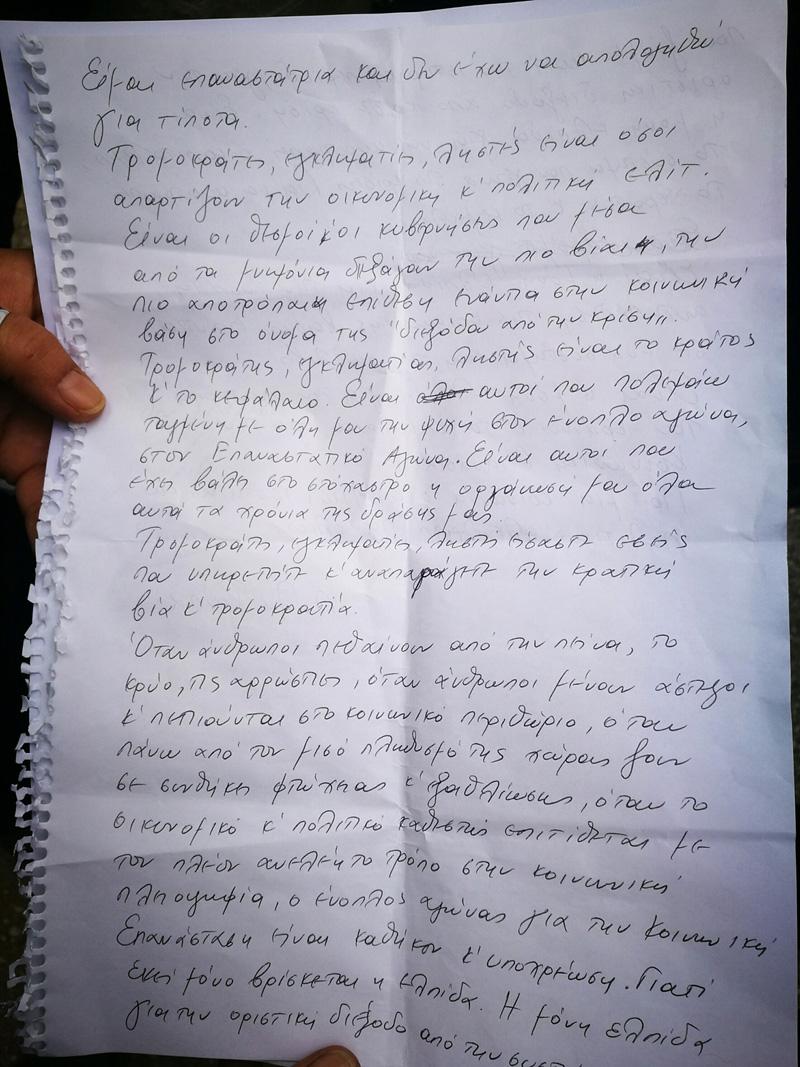 Είμαι επαναστάτρια και δεν έχω να απολογηθώ
για τίποτα.
Τρομοκράτες, εγκληματίες, ληστές είναι όσοι
απαρτίζουν την οικονομική κ' πολιτική ελίτ.
Είναι οι θεσμοί κ' οι κυβερνήσεις που μέσα
από τα μνημόνια διεξάγουν την πιο βίαιη, την
πιο αποτρόπαιη επίθεση ενάντια στην κοινωνική
βάση στο όνομα της "διεξόδου από την κρίση".
Τρομοκράτης, εγκληματίας, ληστής είναι το κράτος
κ' το κεφάλαιο. Είναι αυτοί που πολεμάω
ταγμένη με όλη μου την ψυχή στον ένοπλο αγώνα,
στον Επαναστατικό Αγώνα. Είναι αυτοί που
έχει βάλει στο στόχαστρο η οργάνωσή μου όλα
αυτά τα χρόνια της δράσης μας.
Τρομοκράτες, εγκληματίες, ληστές είσαστε εσείς
που υπηρετείτε κ' αναπαράγετε την κρατική
βία κ' τρομοκρατία.
Όταν άνθρωποι πεθαίνουν από την πείνα, το
κρύο, τις αρρώστιες, όταν άνθρωποι μένουν άστεγοι
κ' πετιούνται στο κοινωνικό περιθώριο, όταν
πάνω από τον μισό πληθυσμό της χώρας ζουν
σε συνθήκες φτώχειας κ' εξαθλίωσης, όταν το
οικονομικό κ' πολιτικό καθεστώς επιτίθεται με
τον πλέον ανελέητο τρόπο στην κοινωνική
πλειοψηφία, ο ένοπλος αγώνας για την Κοινωνική
Επανάσταση είναι καθήκον κ' υποχρέωση. Γιατί
εκεί μόνο βρίσκεται η ελπίδα. Η μόνη ελπίδα
για την οριστική διέξοδο από την